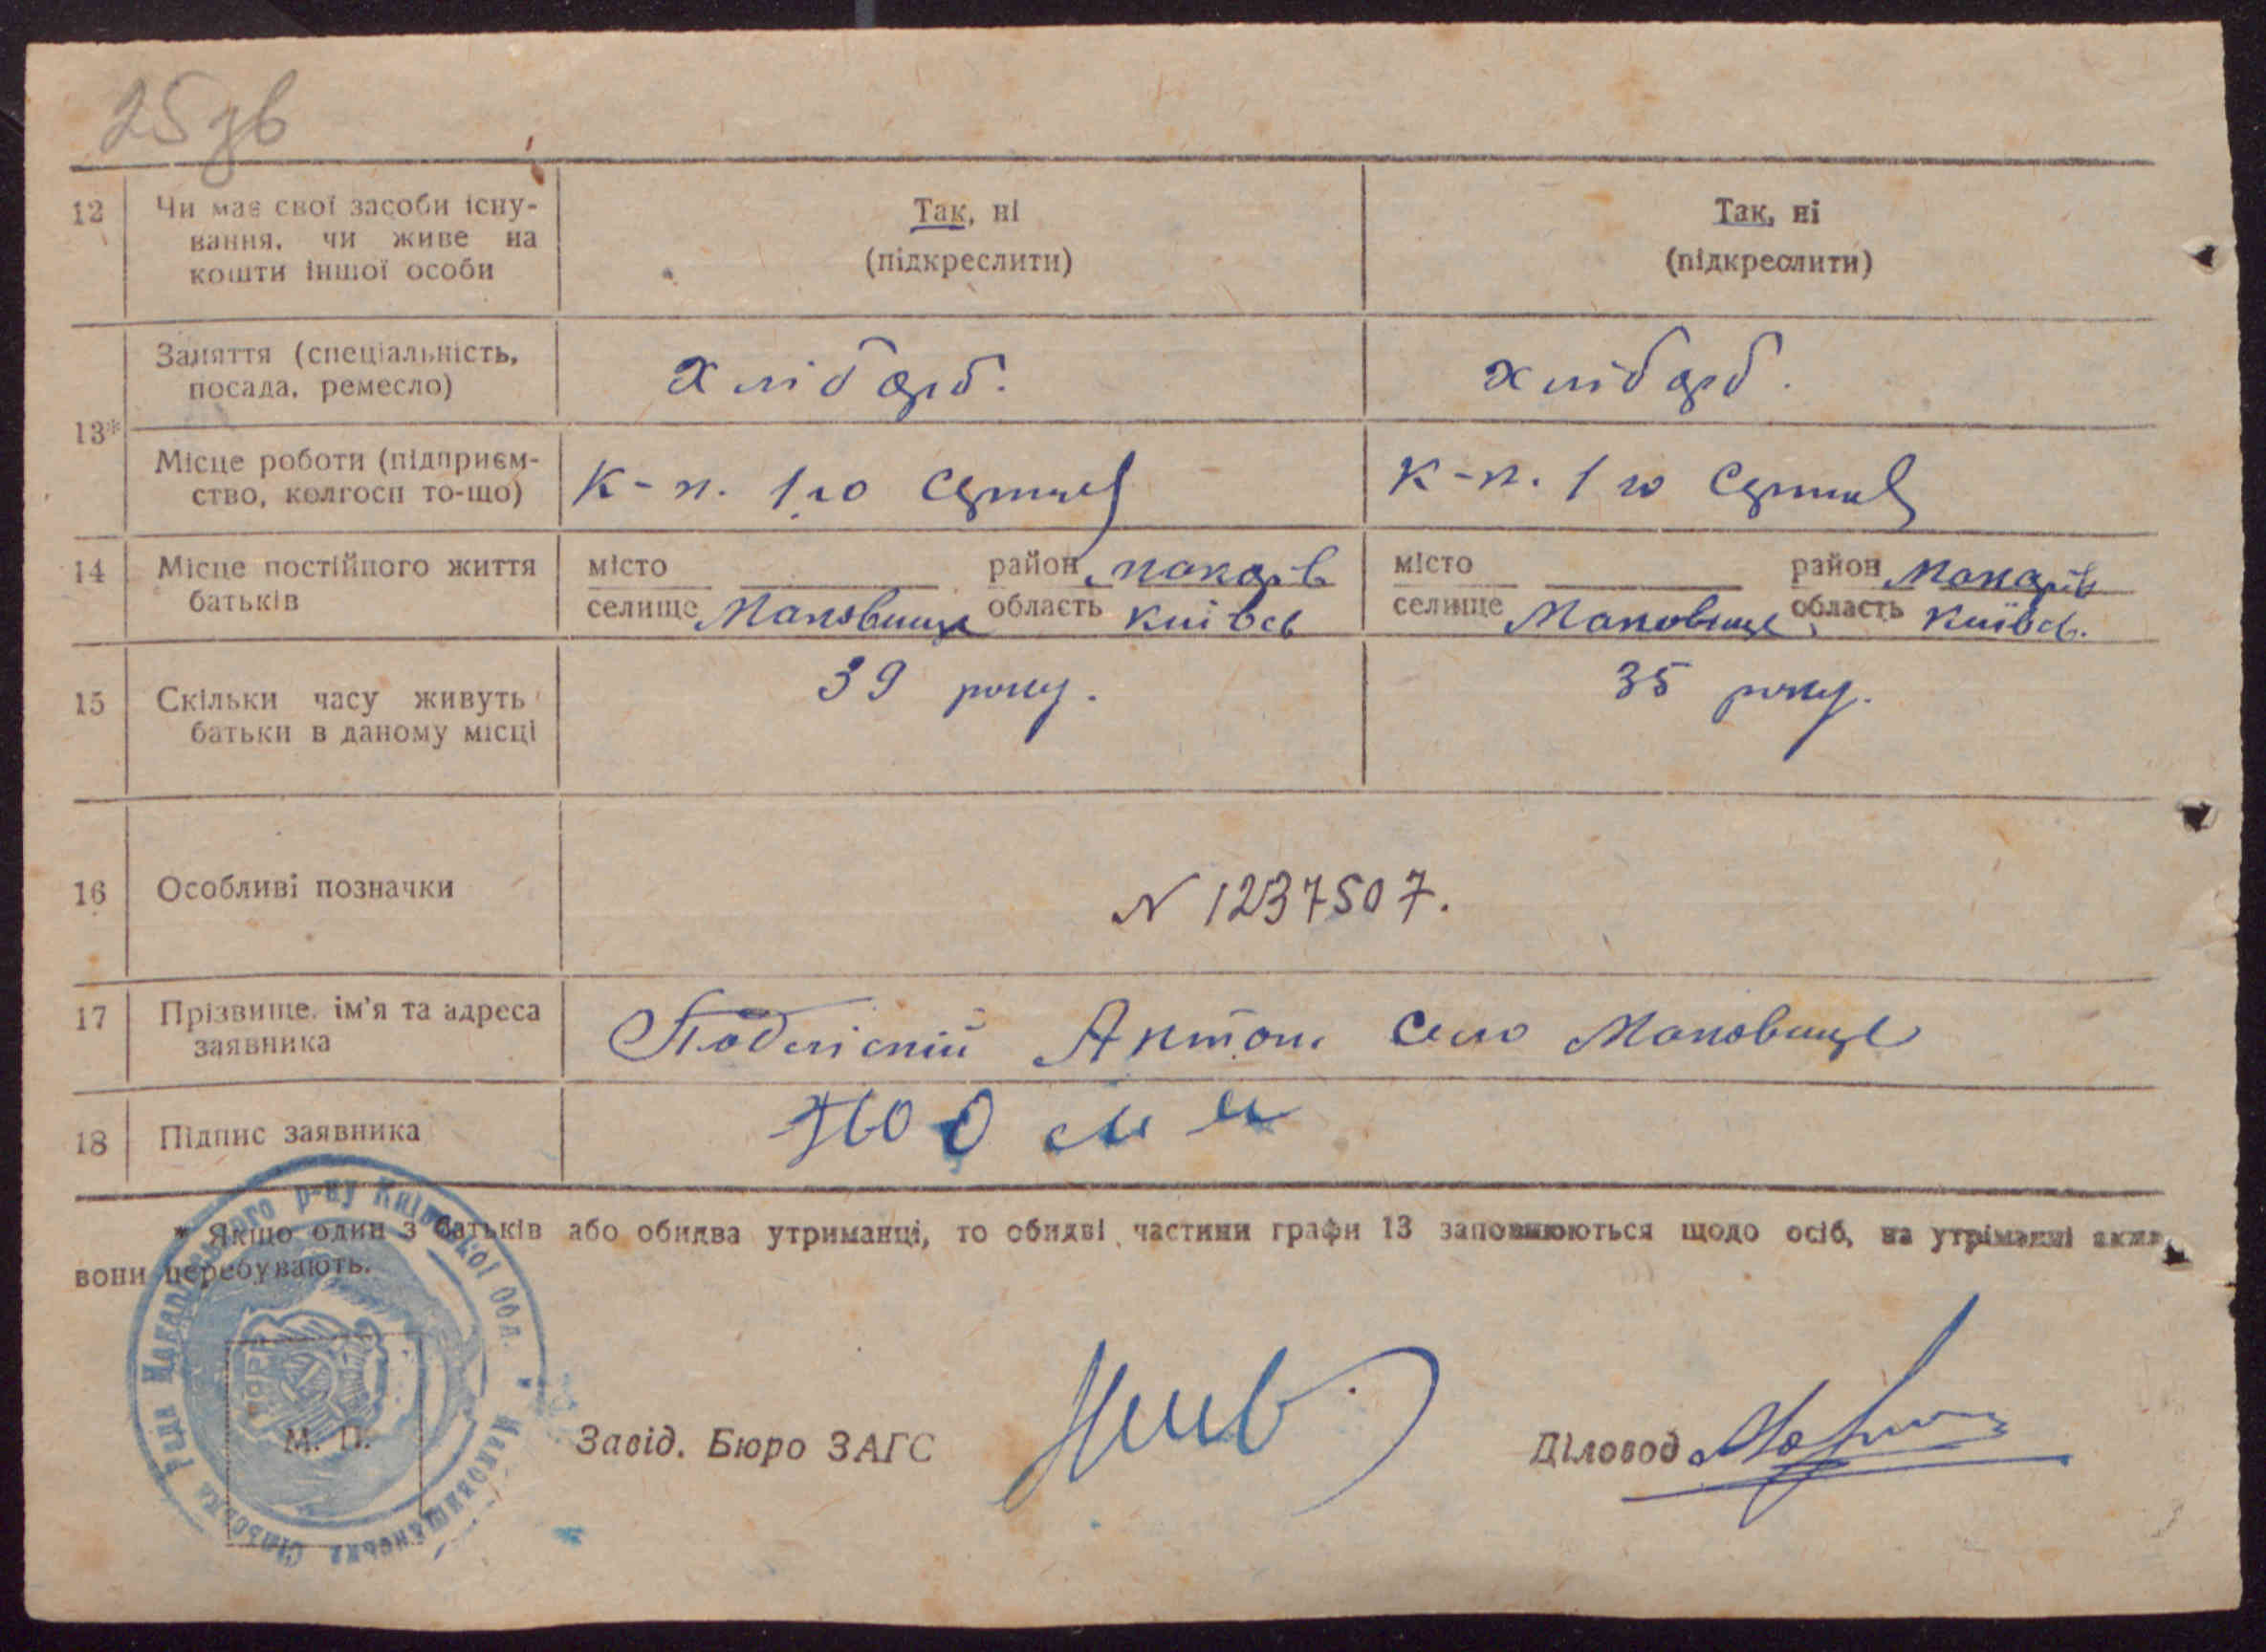 25 зв
12 Чи має свої засоби існу- Так, ні Так, ні
вання, чи живе на
кошти іншої особи (підкреслити) (підкреслити)
13* Заняття (спеціальність, хлібороб. хлібороб.
посада, ремесло)
Місце роботи (підприєм- к-п. 1го Серпня к-п. 1го Серпня
ство, колгосп то-що)
14 Місце постійного життя місто район Макарів місто район Макарів
батьків селище Маковище область Київсь селище Маковище область Київсь.
15 Скільки часу живуть 39 року. 35 року.
батьки в даному місці
16 Особливі позначки N 1237507.
17 Прізвище, ім'я та адреса Подліскій Антон Село Маковище
заявника
18 Підпис заявника
* Якщо один з батьків або обидва утриманці, то обидві частини графи 13 заповнюються щодо осіб, на утріманні яких
вони перебувають.
Маковищанська Сільська Рада Макарівського р-ну Київської Обл.
УСРР
М. П.
Завід. Бюро ЗАГС Діловод